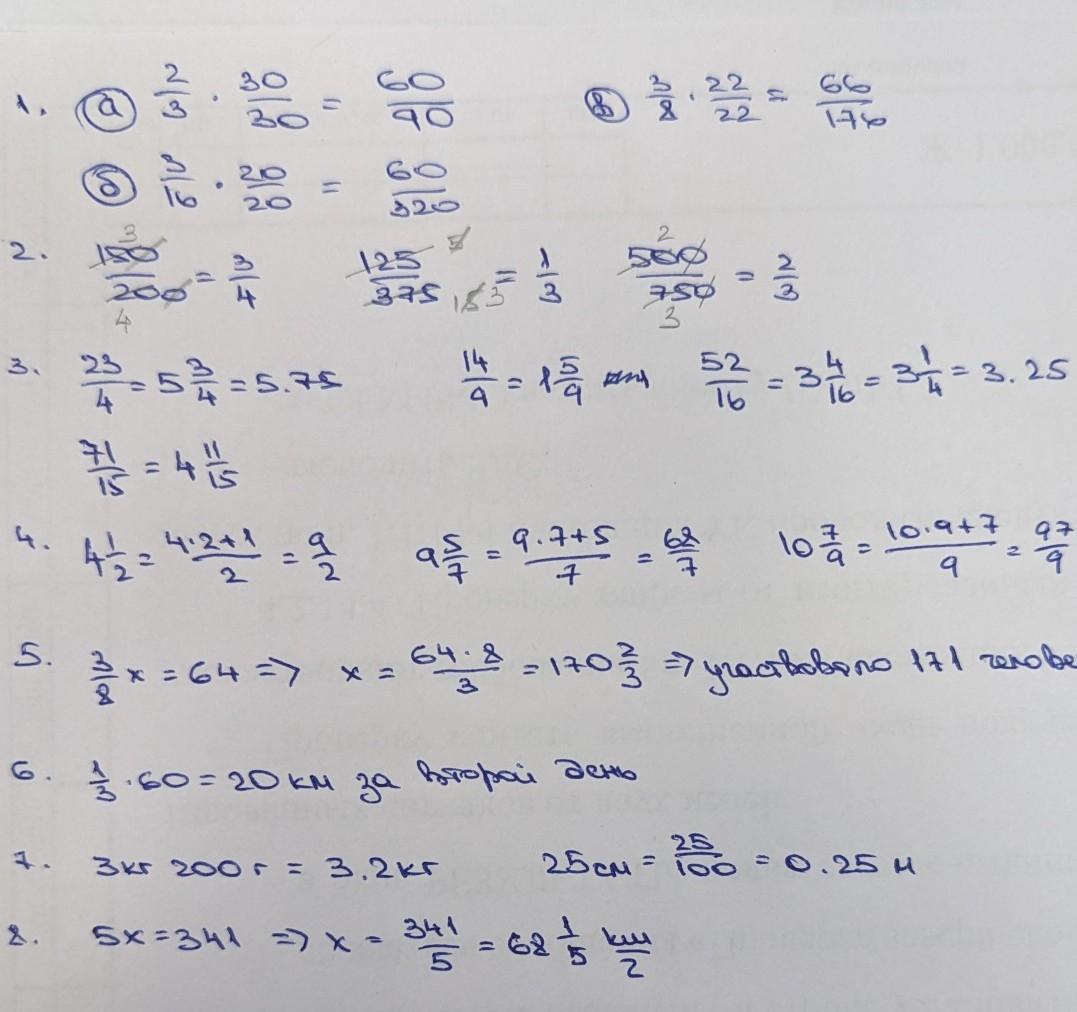 1. а) 2/3 · 30/30 = 60/90 в) 3/8 · 22/22 = 66/176
б) 3/16 · 20/20 = 60/320
2. 150/200 = 3/4 125/375 = 1/3 500/750 = 2/3
3. 23/4 = 5 3/4 = 5.75 14/9 = 1 5/9 52/16 = 3 4/16 = 3 1/4 = 3.25
71/15 = 4 11/15
4. 4 1/2 = (4·2+1)/2 = 9/2 9 5/7 = (9·7+5)/7 = 68/7 10 7/9 = (10·9+7)/9 = 97/9
5. 3/8 x = 64 => x = (64·8)/3 = 170 2/3 => участвовало 171 челове
6. 1/3 · 60 = 20 км за второй день
7. 3 кг 200 г = 3.2 кг 25 см = 25/100 = 0.25 м
8. 5x = 341 => x = 341/5 = 68 1/5 км/г